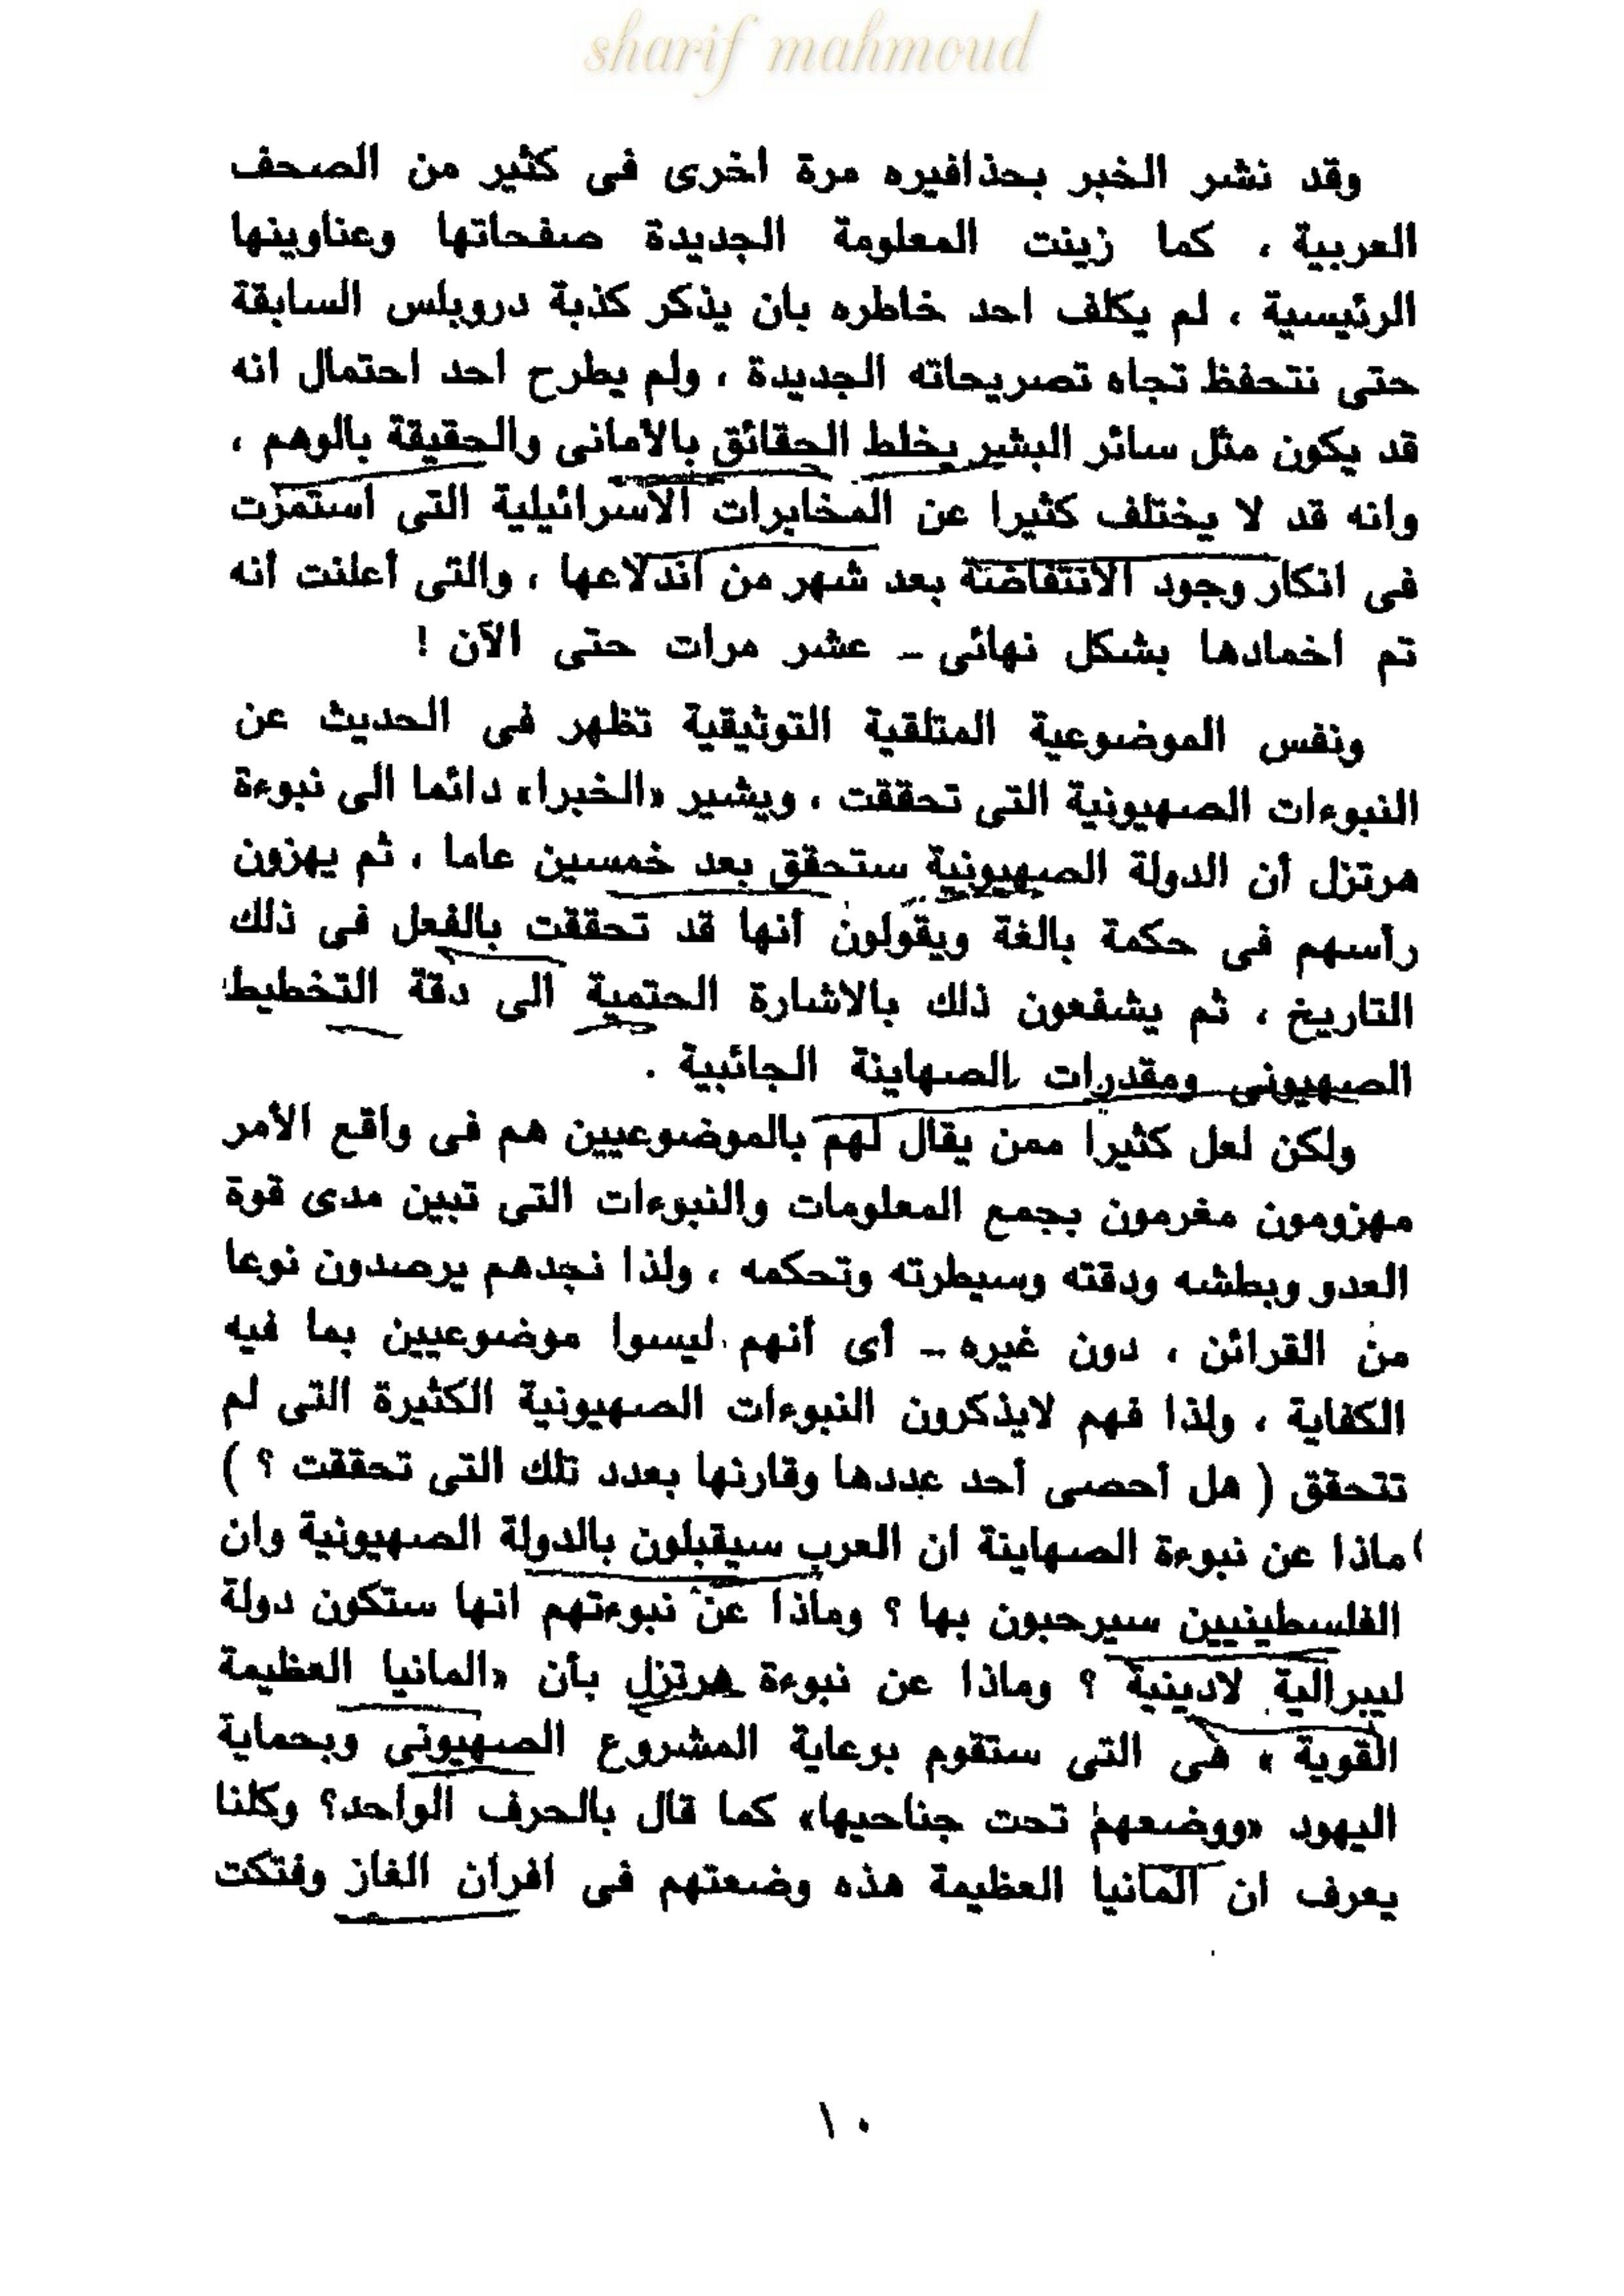 sharif mahmoud
وقد نشر الخبر بحذافيره مرة اخرى فى كثير من الصحف
العربية ، كما زينت المعلومة الجديدة صفحاتها وعناوينها
الرئيسية ، لم يكلف احد خاطره بان يذكر كذبة دروبلس السابقة
حتى نتحفظ تجاه تصريحاته الجديدة ، ولم يطرح احد احتمال انه
قد يكون مثل سائر البشر يخلط الحقائق بالأمانى والحقيقة بالوهم ،
وانه قد لا يختلف كثيرا عن المخابرات الاسرائيلية التى استمرت
فى انكار وجود الانتفاضة بعد شهر من اندلاعها ، والتى أعلنت أنه
تم اخمادها بشكل نهائى ـ عشر مرات حتى الآن !
ونفس الموضوعية المتلقية التوثيقية تظهر فى الحديث عن
النبوءات الصهيونية التى تحققت ، ويشير «الخبرا» دائما الى نبوءة
هرتزل أن الدولة الصهيونية ستحقق بعد خمسين عاما ، ثم يهزون
رأسهم فى حكمة بالغة ويقولون أنها قد تحققت بالفعل فى ذلك
التاريخ ، ثم يشفعون ذلك بالاشارة الحتمية الى دقة التخطيط
الصهيونى ومقدرات الصهاينة الجائبية .
ولكن لعل كثيرا ممن يقال لهم بالموضوعيين هم فى واقع الأمر
مهزومون مغرمون بجمع المعلومات والنبوءات التى تبين مدى قوة
العدو وبطشه ودقته وسيطرته وتحكمه ، ولذا نجدهم يرصدون نوعا
من القرائن ، دون غيره ـ أى أنهم ليسوا موضوعيين بما فيه
الكفاية ، ولذا فهم لايذكرون النبوءات الصهيونية الكثيرة التى لم
تتحقق ( هل أحصى أحد عددها وقارنها بعدد تلك التى تحققت ؟ )
ماذا عن نبوءة الصهاينة ان العرب سيقبلون بالدولة الصهيونية وان
الفلسطينيين سيرحبون بها ؟ وماذا عن نبوءتهم انها ستكون دولة
ليبرالية لادينية ؟ وماذا عن نبوءة هرتزل بأن «المانيا العظيمة
القوية » هى التى ستقوم برعاية المشروع الصهيونى وبحماية
اليهود «ووضعهم تحت جناحيها» كما قال بالحرف الواحد؟ وكلنا
يعرف ان المانيا العظيمة هذه وضعتهم فى افران الغاز وفتكت
١٠